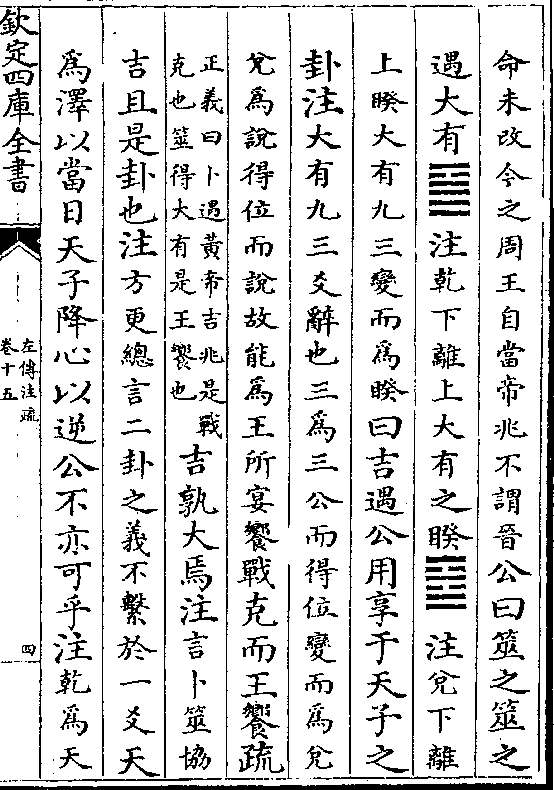 命未改今之周王自當帝兆不謂晉公曰筮之筮之
遇大有䷍注乾下離上大有之睽䷥注兌下離
上睽大有九三變而為睽曰吉遇公用享于天子之
卦注大有九三爻辭也三為三公而得位變而為兌
兌為說得位而說故能為王所宴饗戰克而王饗疏
正義曰卜遇黃帝吉兆是戰
克也筮得大有是王饗也
吉孰大焉注言卜筮協
吉且是卦也注方更總言二卦之義不繫於一爻天
為澤以當日天子降心以逆公不亦可乎注乾為天
欽定四庫全書
左傳注疏
卷十五
四